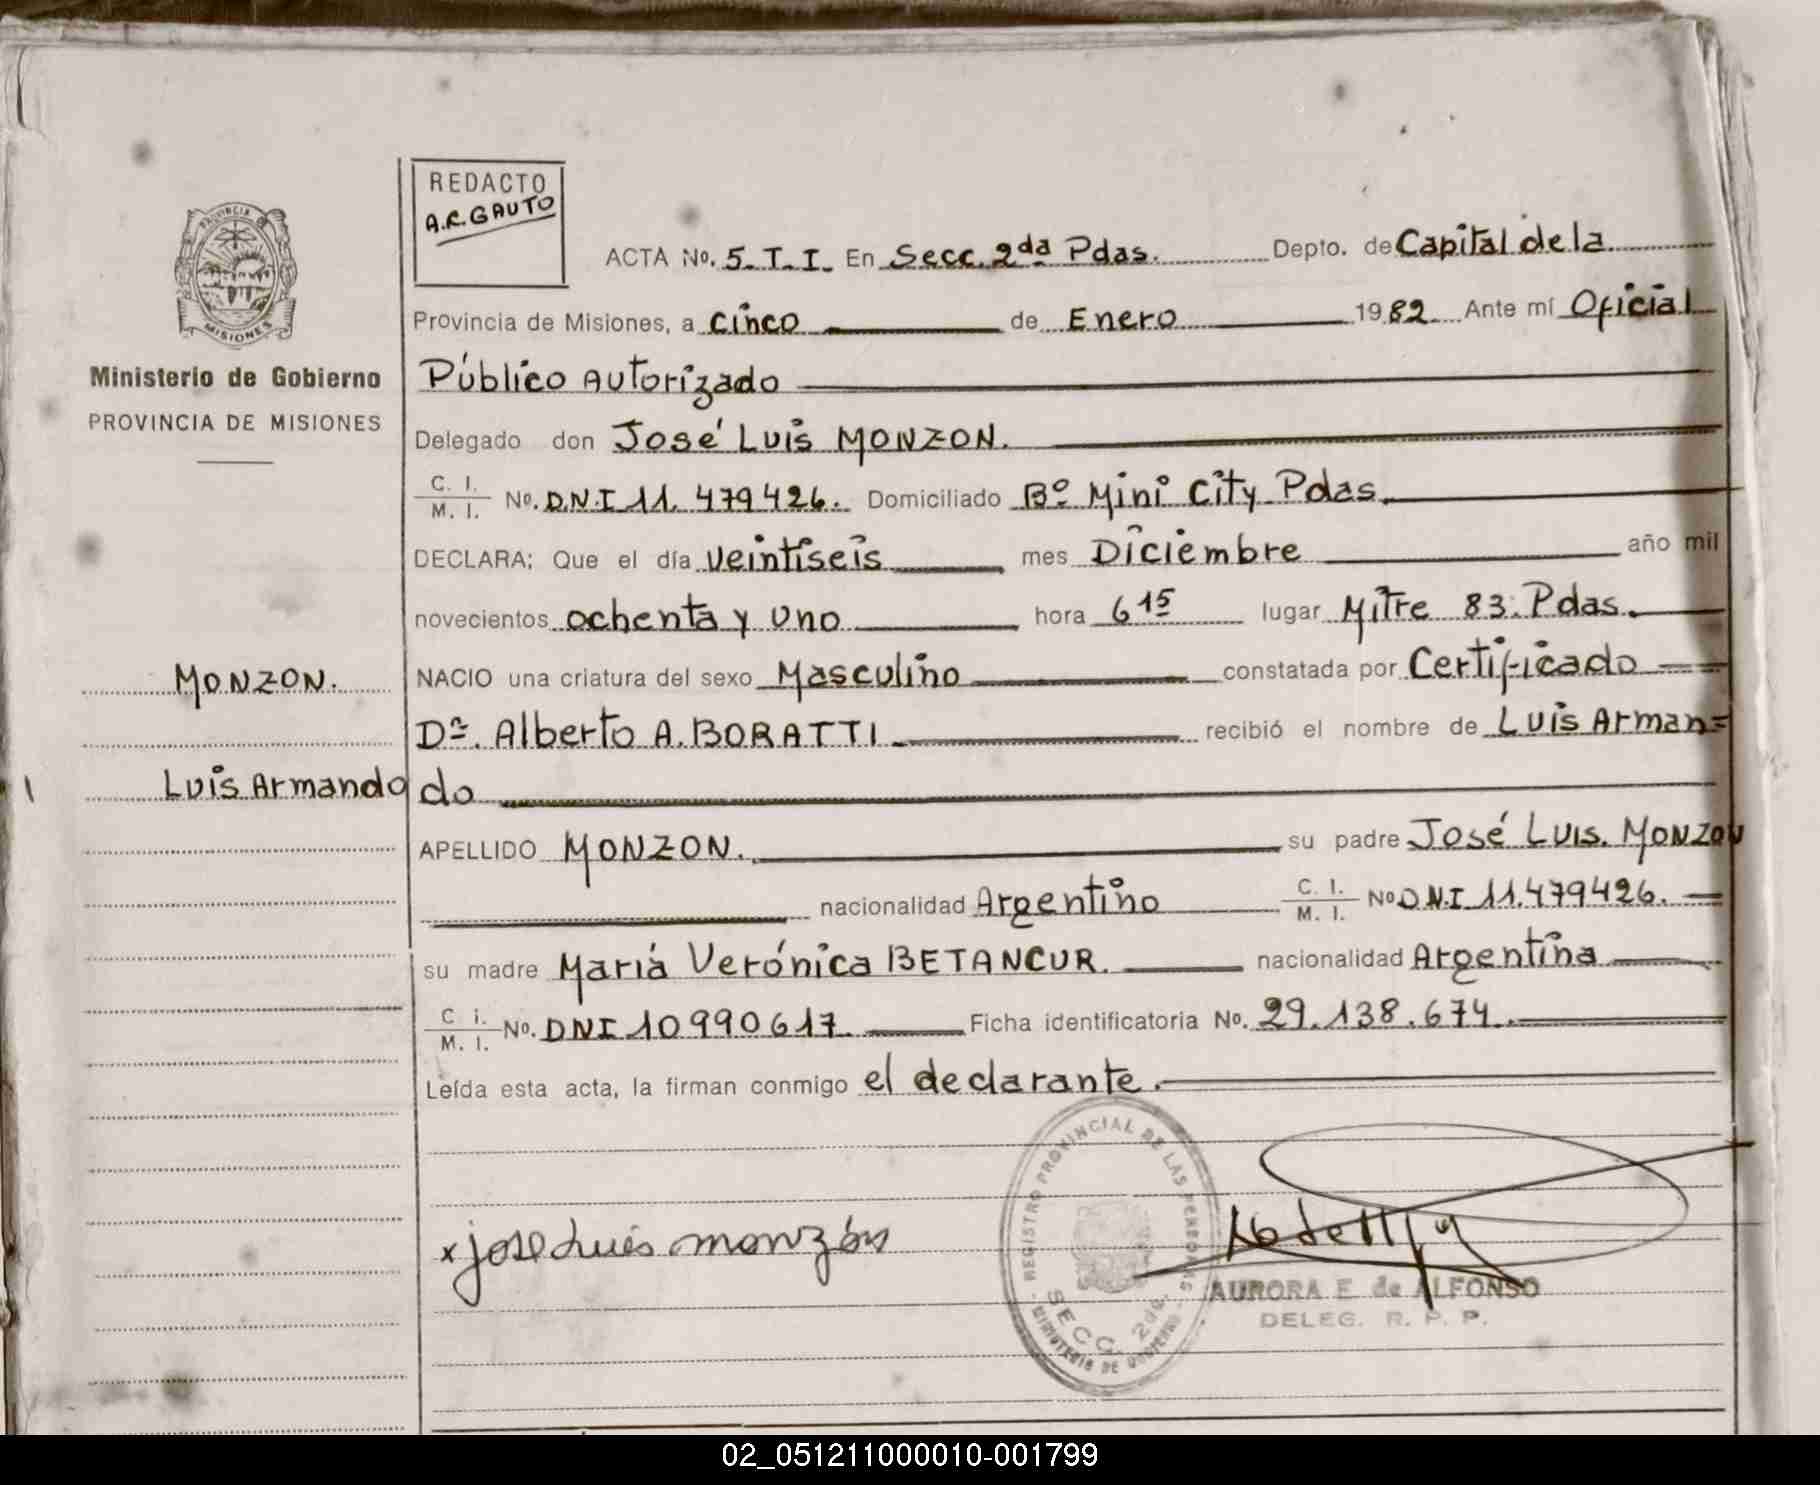 REDACTO
A.R. GAUTO
PROVINCIA DE
MISIONES
Ministerio de Gobierno
PROVINCIA DE MISIONES
ACTA No. 5. T. I. En Secc. 2da Pdas. Depto. de Capital de la
Provincia de Misiones, a cinco de Enero 1982 Ante mí Oficial
Público Autorizado
Delegado don José Luis MONZON.
C. I. / M. I. No. D.N.I 11. 479426. Domiciliado Bº Mini City Pdas.
DECLARA; Que el día veintiseis mes Diciembre año mil
novecientos ochenta y uno hora 6 15 lugar Mitre 83. Pdas.
MONZON.
NACIO una criatura del sexo Masculino constatada por Certificado
Dr. Alberto A. BORATTI recibió el nombre de Luis Arman=
Luis Armando
do
APELLIDO MONZON. su padre José Luis. MONZON
nacionalidad Argentino C. I. / M. I. No D.N.I 11.479426.
su madre María Verónica BETANCUR. nacionalidad Argentina
C i. / M. I. No. DNI 10990617. Ficha identificatoria No. 29.138.674.
Leída esta acta, la firman conmigo el declarante.
x jose Luis monzón
REGISTRO PROVINCIAL DE LAS PERSONAS
SECC. 2da.
MINISTERIO DE GOBIERNO
AURORA E. de ALFONSO
DELEG. R. P. P.
02_051211000010-001799